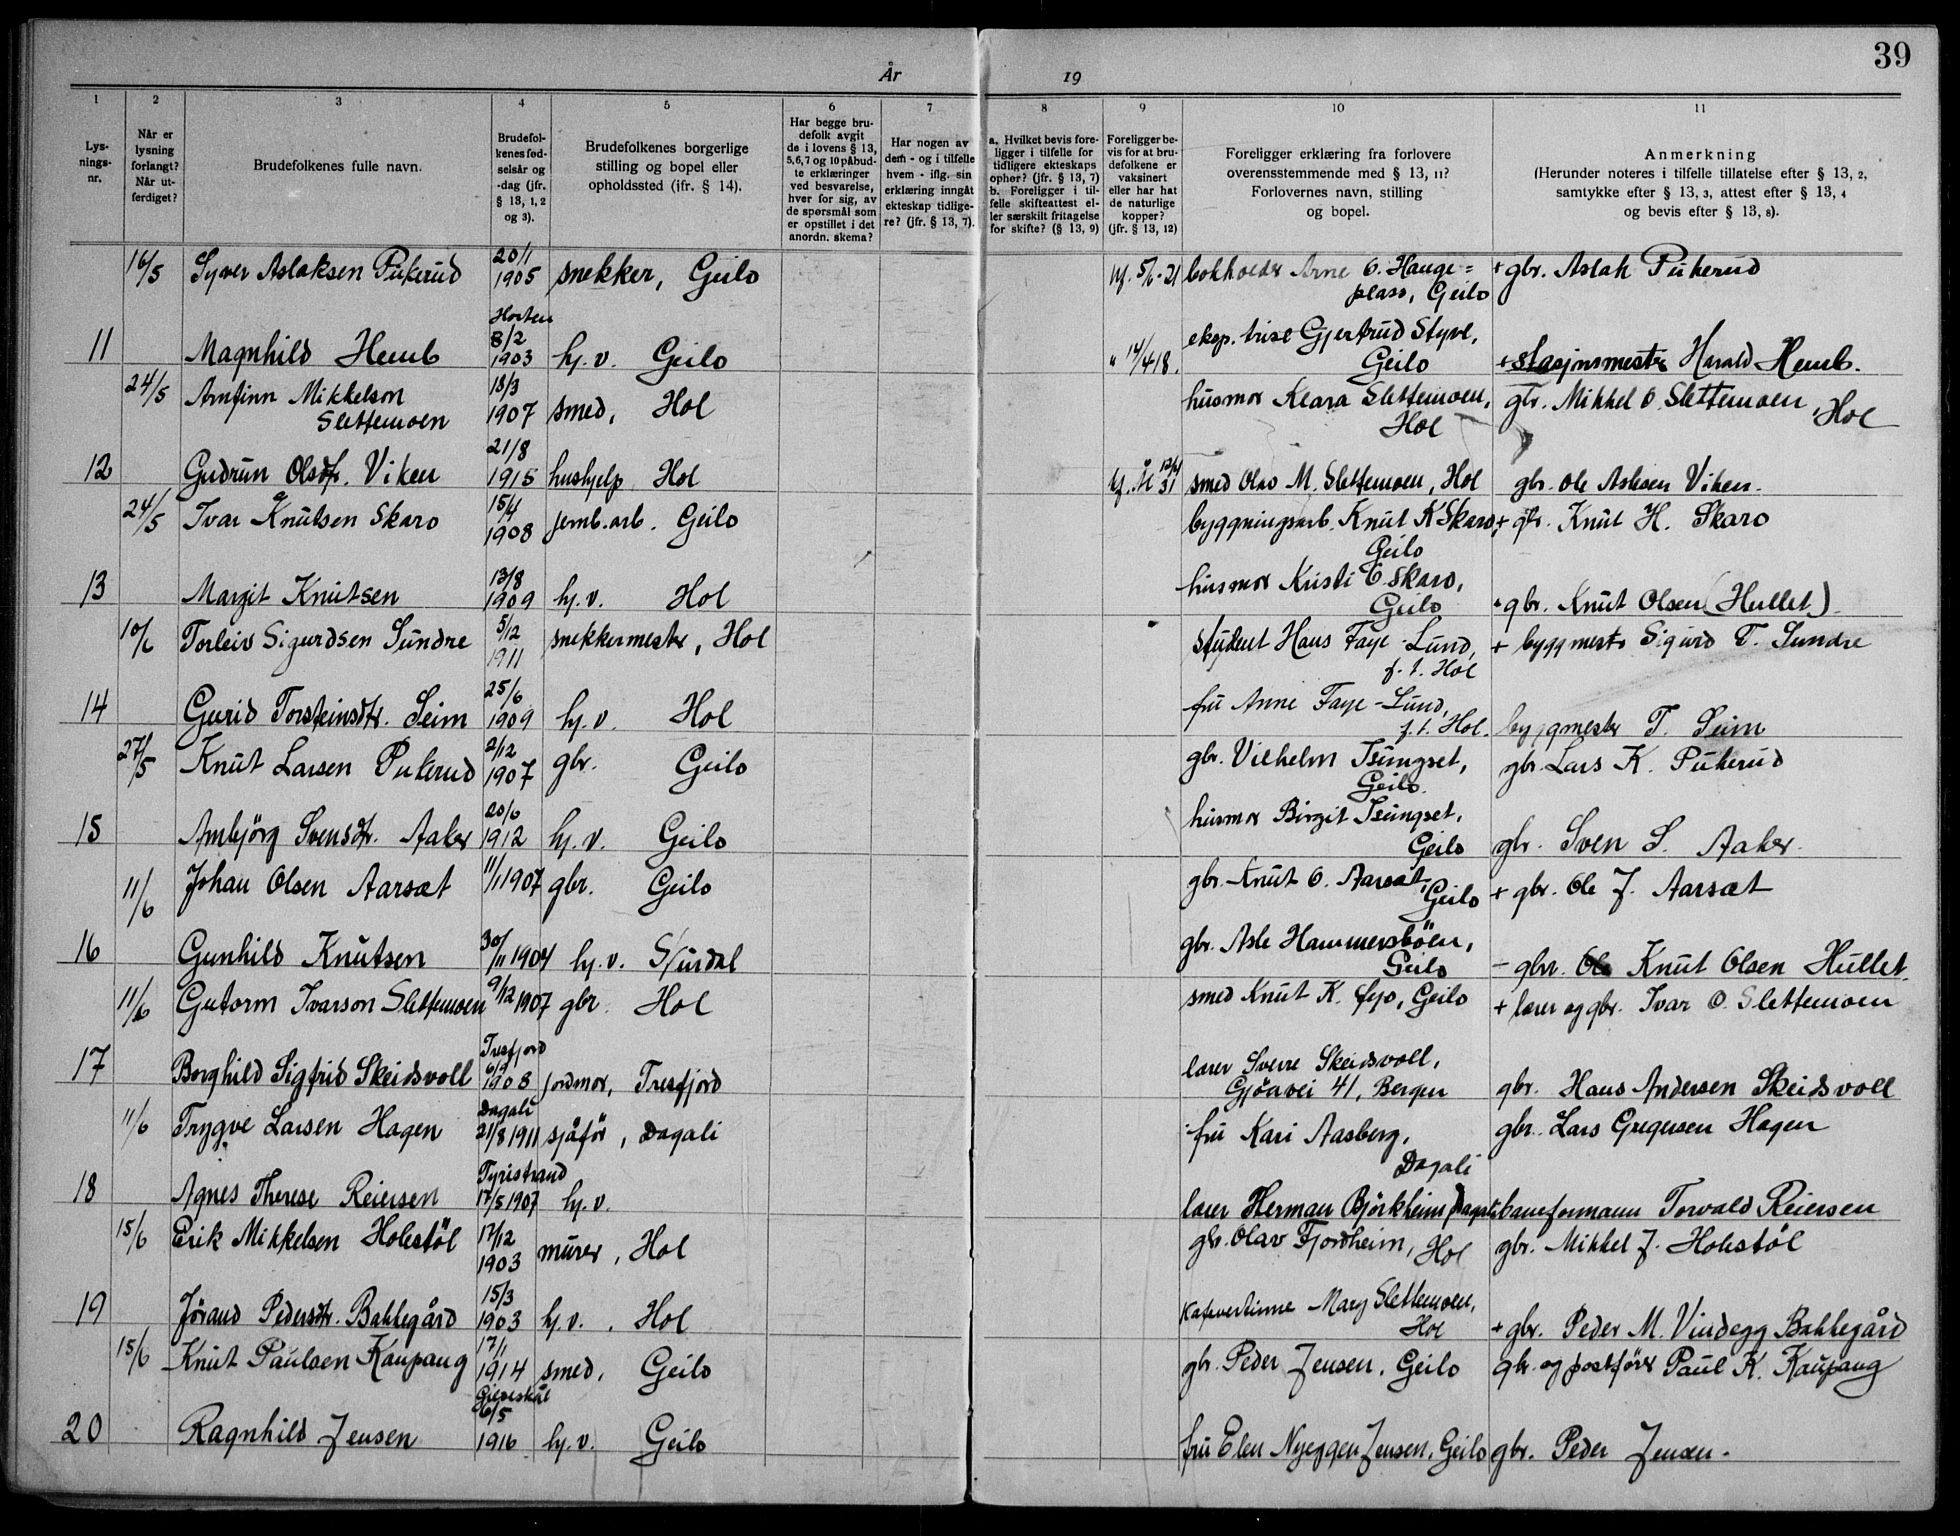 39
År 19
1 2 3 4 5 6 7 8 9 10 11
Lysningsnr.
Når er lysning forlangt? Når utferdiget?
Brudefolkenes fulle navn.
Brudefolkenes fødselsår og -dag (jfr. § 13, 1, 2 og 3).
Brudefolkenes borgerlige stilling og bopel eller opholdssted (ifr. § 14).
Har begge brudefolk avgit de i lovens § 13, 5,6,7 og 10 påbudte erklæringer ved besvarelse, hver for sig, av de spørsmål som er opstillet i det anordn. skema?
Har nogen av dem - og i tilfelle hvem - iflg. sin erklæring inngåt ekteskap tidligere? (jfr. § 13, 7).
a. Hvilket bevis foreligger i tilfelle for tidligere ekteskaps ophør? (jfr. § 13, 7) b. Foreligger i tilfelle skifteattest eller særskilt fritagelse for skifte? (§ 13, 9)
Foreligger bevis for at brudefolkene er vaksinert eller har hat de naturlige kopper? (jfr. § 13, 12)
Foreligger erklæring fra forlovere overensstemmende med § 13, 11? Forlovernes navn, stilling og bopel.
Anmerkning (Herunder noteres i tilfelle tillatelse efter § 13, 2, samtykke efter § 13, 3, attest efter § 13, 4 og bevis efter § 13, 8).
16/5 Syver Aslaksen Pukerud 20/1 1905 snekker, Geilo 5/6-21 bokholder Arne O. Hauge= plass, Geilo + gbr. Aslak Pukerud
11 Magnhild Hemb Horten 8/2 1903 hj. v. Geilo " 14/4 18. eksp. trise Gjertrud Styve, Geilo + stasjonsmester Harald Hemb.
24/5 Arnfinn Mikkelson Slettemoen 13/3 1907 smed, Hol husmor Klara Slettemoen, Hol gbr. Mikkel O. Slettemoen, Hol
12 Gudrun Olsdtr. Viken 21/8 1915 hushjelp Hol smed Olav M. Slettemoen, Hol gbr. Ole Aslesen Viken.
24/5 Ivar Knutsen Skaro 15/4 1908 jernb. arb. Geilo byggningsarb. Knut K Skaro, Geilo + gbr. Knut H. Skaro
13 Margit Knutsen 13/8 1909 hj. v. Hol husmor Kristi E. Skaro, Geilo + gbr. Knut Olsen (Hullet).
10/6 Torleiv Sigurdsen Sundre 5/12 1911 snekkermester, Hol student Hans Faye-Lund, f. t. Hol + byggmester Sigurd T. Sundre
14 Gurid Torsteinsdtr. Seim 25/6 1909 hj. v. Hol fru Anne Faye-Lund, f. t. Hol. byggmester T. Seim
27/5 Knut Larsen Pukerud 2/12 1907 gbr. Geilo gbr. Vilhelm Tsungset, Geilo. gbr. Lars K. Pukerud
15 Ambjörg Svensdtr. Aaker 20/6 1912 hj. v. Geilo husmor Birgit Tsungset, Geilo gbr. Sven S. Aaker.
11/6 Johan Olsen Aarsæt 11/1 1907 gbr. Geilo gbr. Knut O. Aarsæt, Geilo + gbr. Ole J. Aarsæt
16 Gunhild Knutsen 30/11 1904 hj. v. S/urdal gbr. Asle Hammersböen, Geilo - gbr. Knut Olsen Hullet.
11/6 Gutorm Ivarson Slettemoen 9/12 1907 gbr. Hol smed Knut K. Geilo + lærer og gbr. Ivar O. Slettemoen
17 Borghild Sigfrid Skeidsvoll Tresfjord 1908 jordmor, Tresfjord lærer Sverre Skeidsvoll, Gjöavei 41, Bergen gbr. Hans Andersen Skeidsvoll
11/6 Trygve Larsen Hagen Dagali 21/8 1911 sjåför, Dagali fru Kari Aasberg, Dagali gbr. Lars Gregersen Hagen
18 Agnes Therese Reiersen Tyristrand 17/5 1907 hj. v. lærer Herman Björkheim, Dagali baneformann Torvald Reiersen
15/6 Erik Mikkelsen Holestöl 17/12 1903 murer, Hol gbr. Olav Fjordheim, Hol gbr. Mikkel J. Holestöl
19 Jørand Pedersdtr. Bakkegård 15/3 1903 hj. v. Hol Kafevertinne Mary Slettemoen, Hol + gbr. Peder M. Vindegg Bakkegård
15/6 Knut Paulsen Kaupang 17/1 1914 smed, Geilo gbr. Peder Jensen, Geilo gbr. og postförer Paul K. Kaupang
20 Ragnhild Jensen 6/5 1916 hj. v. Geilo fru Elen Nyeggen Jensen, Geilo gbr. Peder Jensen.